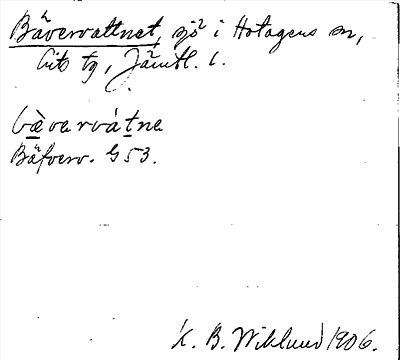 Bävervattnet, sjö i Hotagens sn,
Lits tg, Jämtl. l.
bævarvátne
Bäfverv. G 53.
K. B. Wiklund 1906.